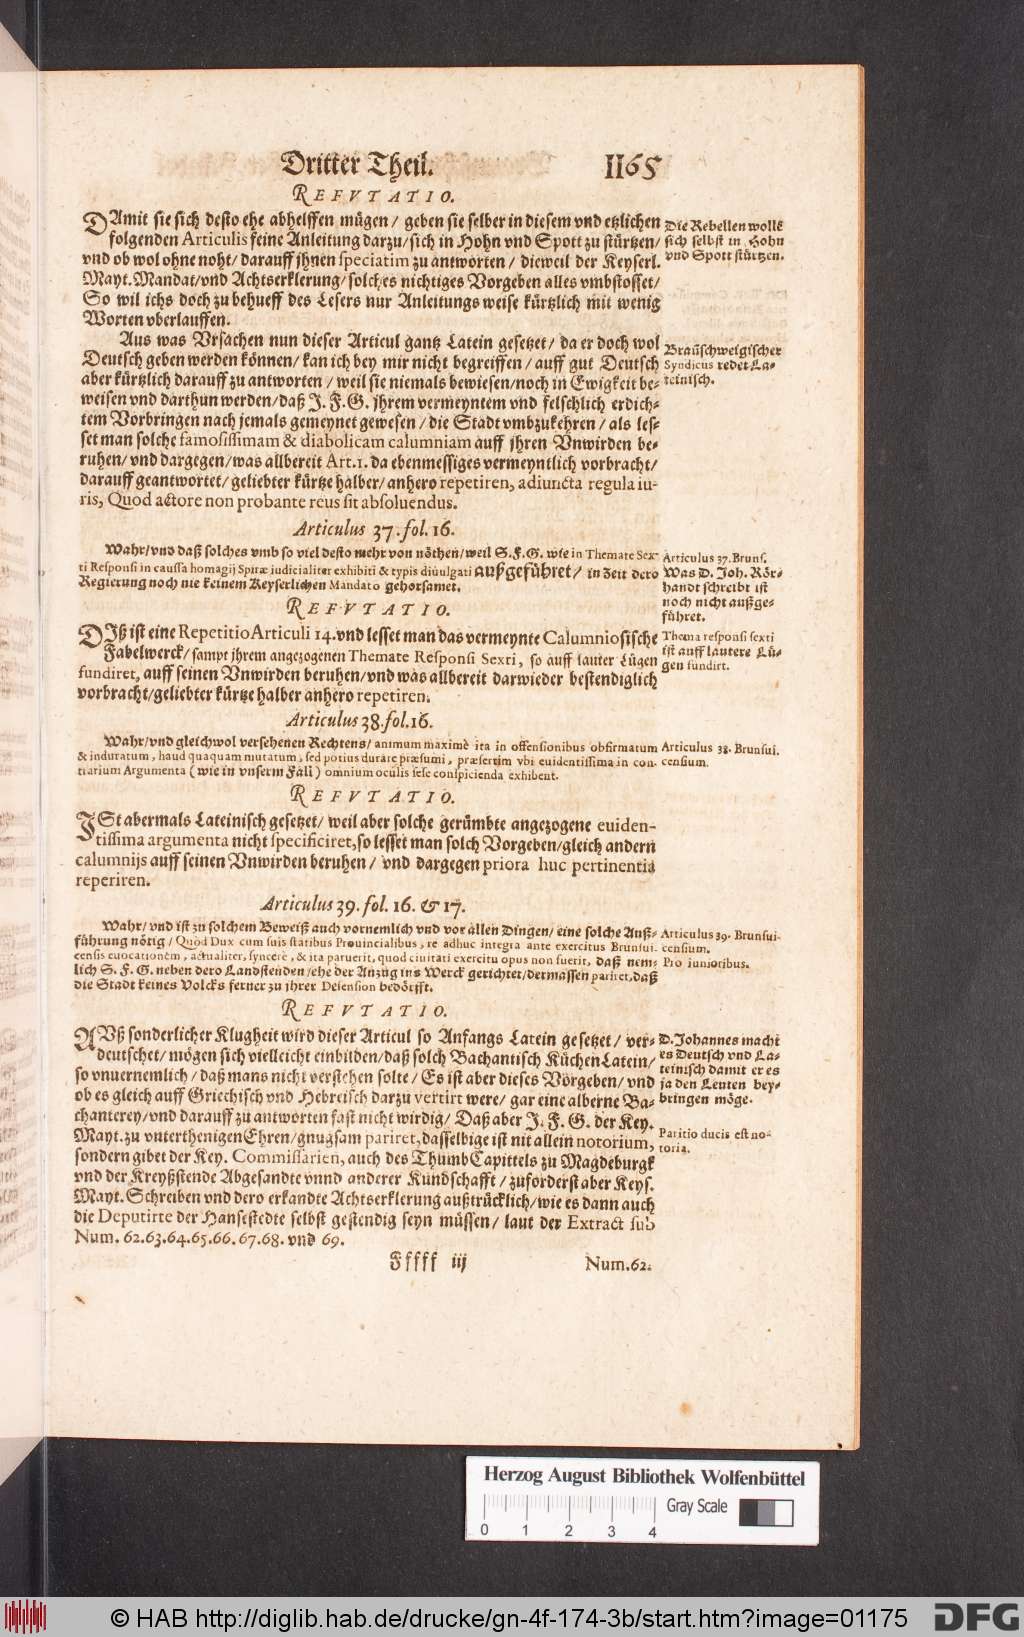 Dritter Theil. 1165
REFVTATIO.
DAmit sie sich desto ehe abhelffen mügen / geben sie selber in diesem vnd etzlichen
folgenden Articulis feine Anleitung darzu / sich in Hohn vnd Spott zu stürtzen /
vnd ob wol ohne noht / darauff jhnen speciatim zu antworten / dieweil der Keyserl.
Mayt. Mandat / vnd Achtserklerung / solches nichtiges Vorgeben alles vmbstosset /
So wil ichs doch zu behueff des Lesers nur Anleitungs weise kürtzlich mit wenig
Worten vberlauffen.
Die Rebellen wollẽ
sich selbst in Hohn
vnd Spott stürtzen.
Aus was Vrsachen nun dieser Articul gantz Latein gesetzet / da er doch wol
Deutsch geben werden können / kan ich bey mir nicht begreiffen / auff gut Deutsch
aber kürtzlich darauff zu antworten / weil sie niemals bewiesen / noch in Ewigkeit be-
weisen vnd darthun werden / daß J. F. G. jhrem vermeyntem vnd felschlich erdich-
tem Vorbringen nach jemals gemeynet gewesen / die Stadt vmbzukehren / als les-
set man solche famosissimam & diabolicam calumniam auff jhren Vnwirden be-
ruhen / vnd dargegen / was allbereit Art. 1. da ebenmessiges vermeyntlich vorbracht /
darauff geantwortet / geliebter kürtze halber / anhero repetiren, adiuncta regula iu-
ris, Quod actore non probante reus sit absoluendus.
Braũschweigischer
Syndicus redet La-
teinisch.
Articulus 37. fol. 16.
Wahr / vnd daß solches vmb so viel desto mehr von nöthen / weil S. F. G. wie in Themate Sex-
ti Responsi in caussa homagij Spiræ iudicialiter exhibiti & typis diuulgati außgeführet / in Zeit dero
Regierung noch nie keinem Keyserlichen Mandato gehorsamet.
Articulus 37. Bruns.
Was D. Joh. Rör-
handt schreibt ist
noch nicht außge-
führet.
REFVTATIO.
DIß ist eine Repetitio Articuli 14. vnd lesset man das vermeynte Calumniosische
Fabelwerck / sampt jhrem angezogenen Themate Responsi Sexti, so auff lauter Lügen
fundiret, auff seinen Vnwirden beruhen / vnd was allbereit darwieder bestendiglich
vorbracht / geliebter kürtze halber anhero repetiren.
Thema responsi sexti
ist auff lautere Lü-
gen fundirt.
Articulus 38. fol. 16.
Wahr / vnd gleichwol versehenen Rechtens / animum maximè ita in offensionibus obfirmatum
& induratum, haud quaquam mutatum, sed potius durare præsumi, præsertim vbi euidentissima in con-
trarium Argumenta (wie in vnserm Fall) omnium oculis sese conspicienda exhibent.
Articulus 38. Brunsui.
censium.
REFVTATIO.
JSt abermals Lateinisch gesetzet / weil aber solche gerümbte angezogene euiden-
tissima argumenta nicht specificiret, so lesset man solch Vorgeben / gleich andern
calumnijs auff seinen Vnwirden beruhen / vnd dargegen priora huc pertinentia
reperiren.
Articulus 39. fol. 16. & 17.
Wahr / vnd ist zu solchem Beweiß auch vornemlich vnd vor allen Dingen / eine solche Auß-
führung nötig / Quòd Dux cum suis statibus Prouincialibus, re adhuc integra ante exercitus Brunsui-
censis euocationem, actualiter, syncerè, & ita paruerit, quod ciuitati exercitu opus non fuerit, daß nem-
lich S. F. G. neben dero Landstenden / ehe der Anzug ins Werck gerichtet / dermassen pariret, daß
die Stadt keines Volcks ferner zu jhrer Defension bedörfft.
Articulus 39. Brunsui-
censium.
Pro iunioribus.
REFVTATIO.
AVß sonderlicher Klugheit wird dieser Articul so Anfangs Latein gesetzet / ver-
deutschet / mögen sich vielleicht einbilden / daß solch Bachantisch Küchen Latein /
so vnuernemlich / daß mans nicht verstehen solte / Es ist aber dieses Vorgeben / vnd
ob es gleich auff Griechisch vnd Hebreisch darzu vertirt were / gar eine alberne Ba-
chanterey / vnd darauff zu antworten fast nicht wirdig / Daß aber J. F. G. der Key.
Mayt. zu vnterthenigen Ehren / gnugsam pariret, dasselbige ist nit allein notorium,
sondern gibet der Key. Commissarien, auch des ThumbCapittels zu Magdeburgk
vnd der Kreyßstende Abgesandte vnnd anderer Kundschafft / zuforderst aber Keys.
Mayt. Schreiben vnd dero erkandte Achtserklerung außtrücklich / wie es dann auch
die Deputirte der Hansestedte selbst gestendig seyn müssen / laut der Extract sub
Num. 62. 63. 64. 65. 66. 67. 68. vnd 69.
D. Johannes macht
es Deutsch vnd La-
teinisch damit er es
ja den Leuten bey-
bringen möge.
Paritio ducis est no-
toria.
Fffff iij Num. 62.
Herzog August Bibliothek Wolfenbüttel
Gray Scale
0 1 2 3 4
© HAB http://diglib.hab.de/drucke/gn-4f-174-3b/start.htm?image=01175
DFG